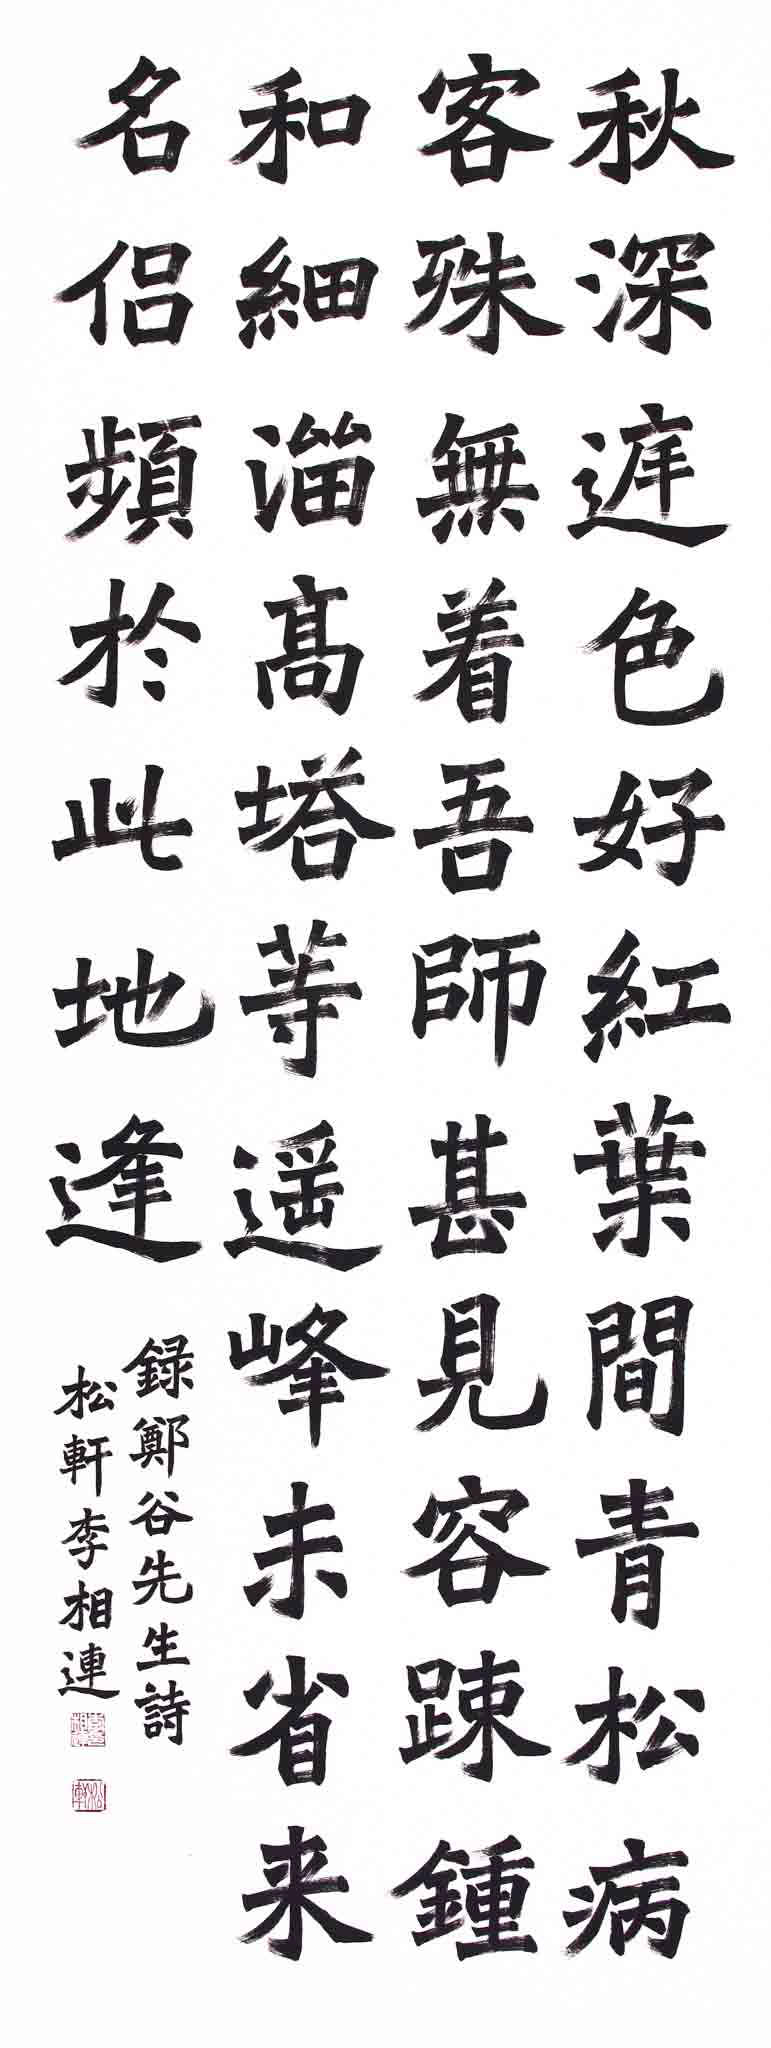 秋深遅色好紅葉間青松病
客殊無着吾師甚見容踈鍾
和細溜髙塔等遥峰未省来
名侶頻於此地逢
録鄭谷先生詩
松軒李相連
松軒